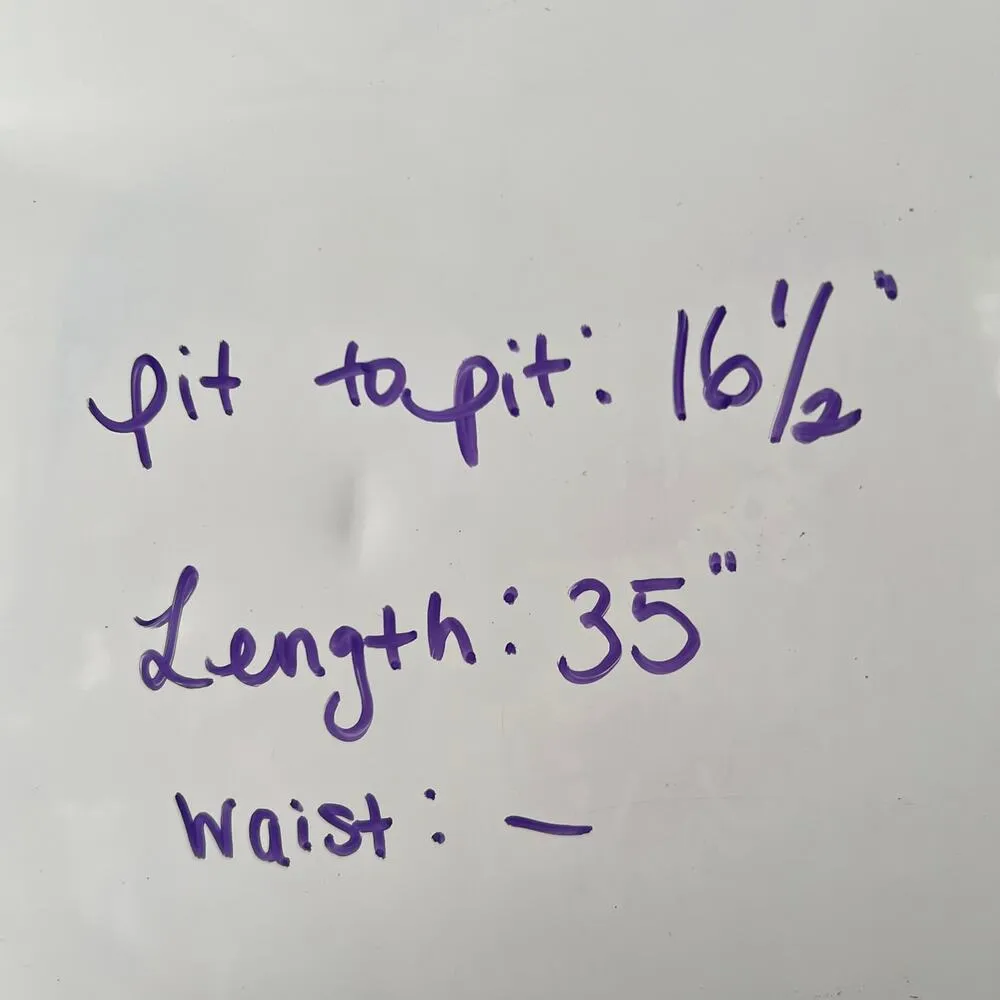 pit to pit: 16 1/2"
Length: 35"
Waist: —